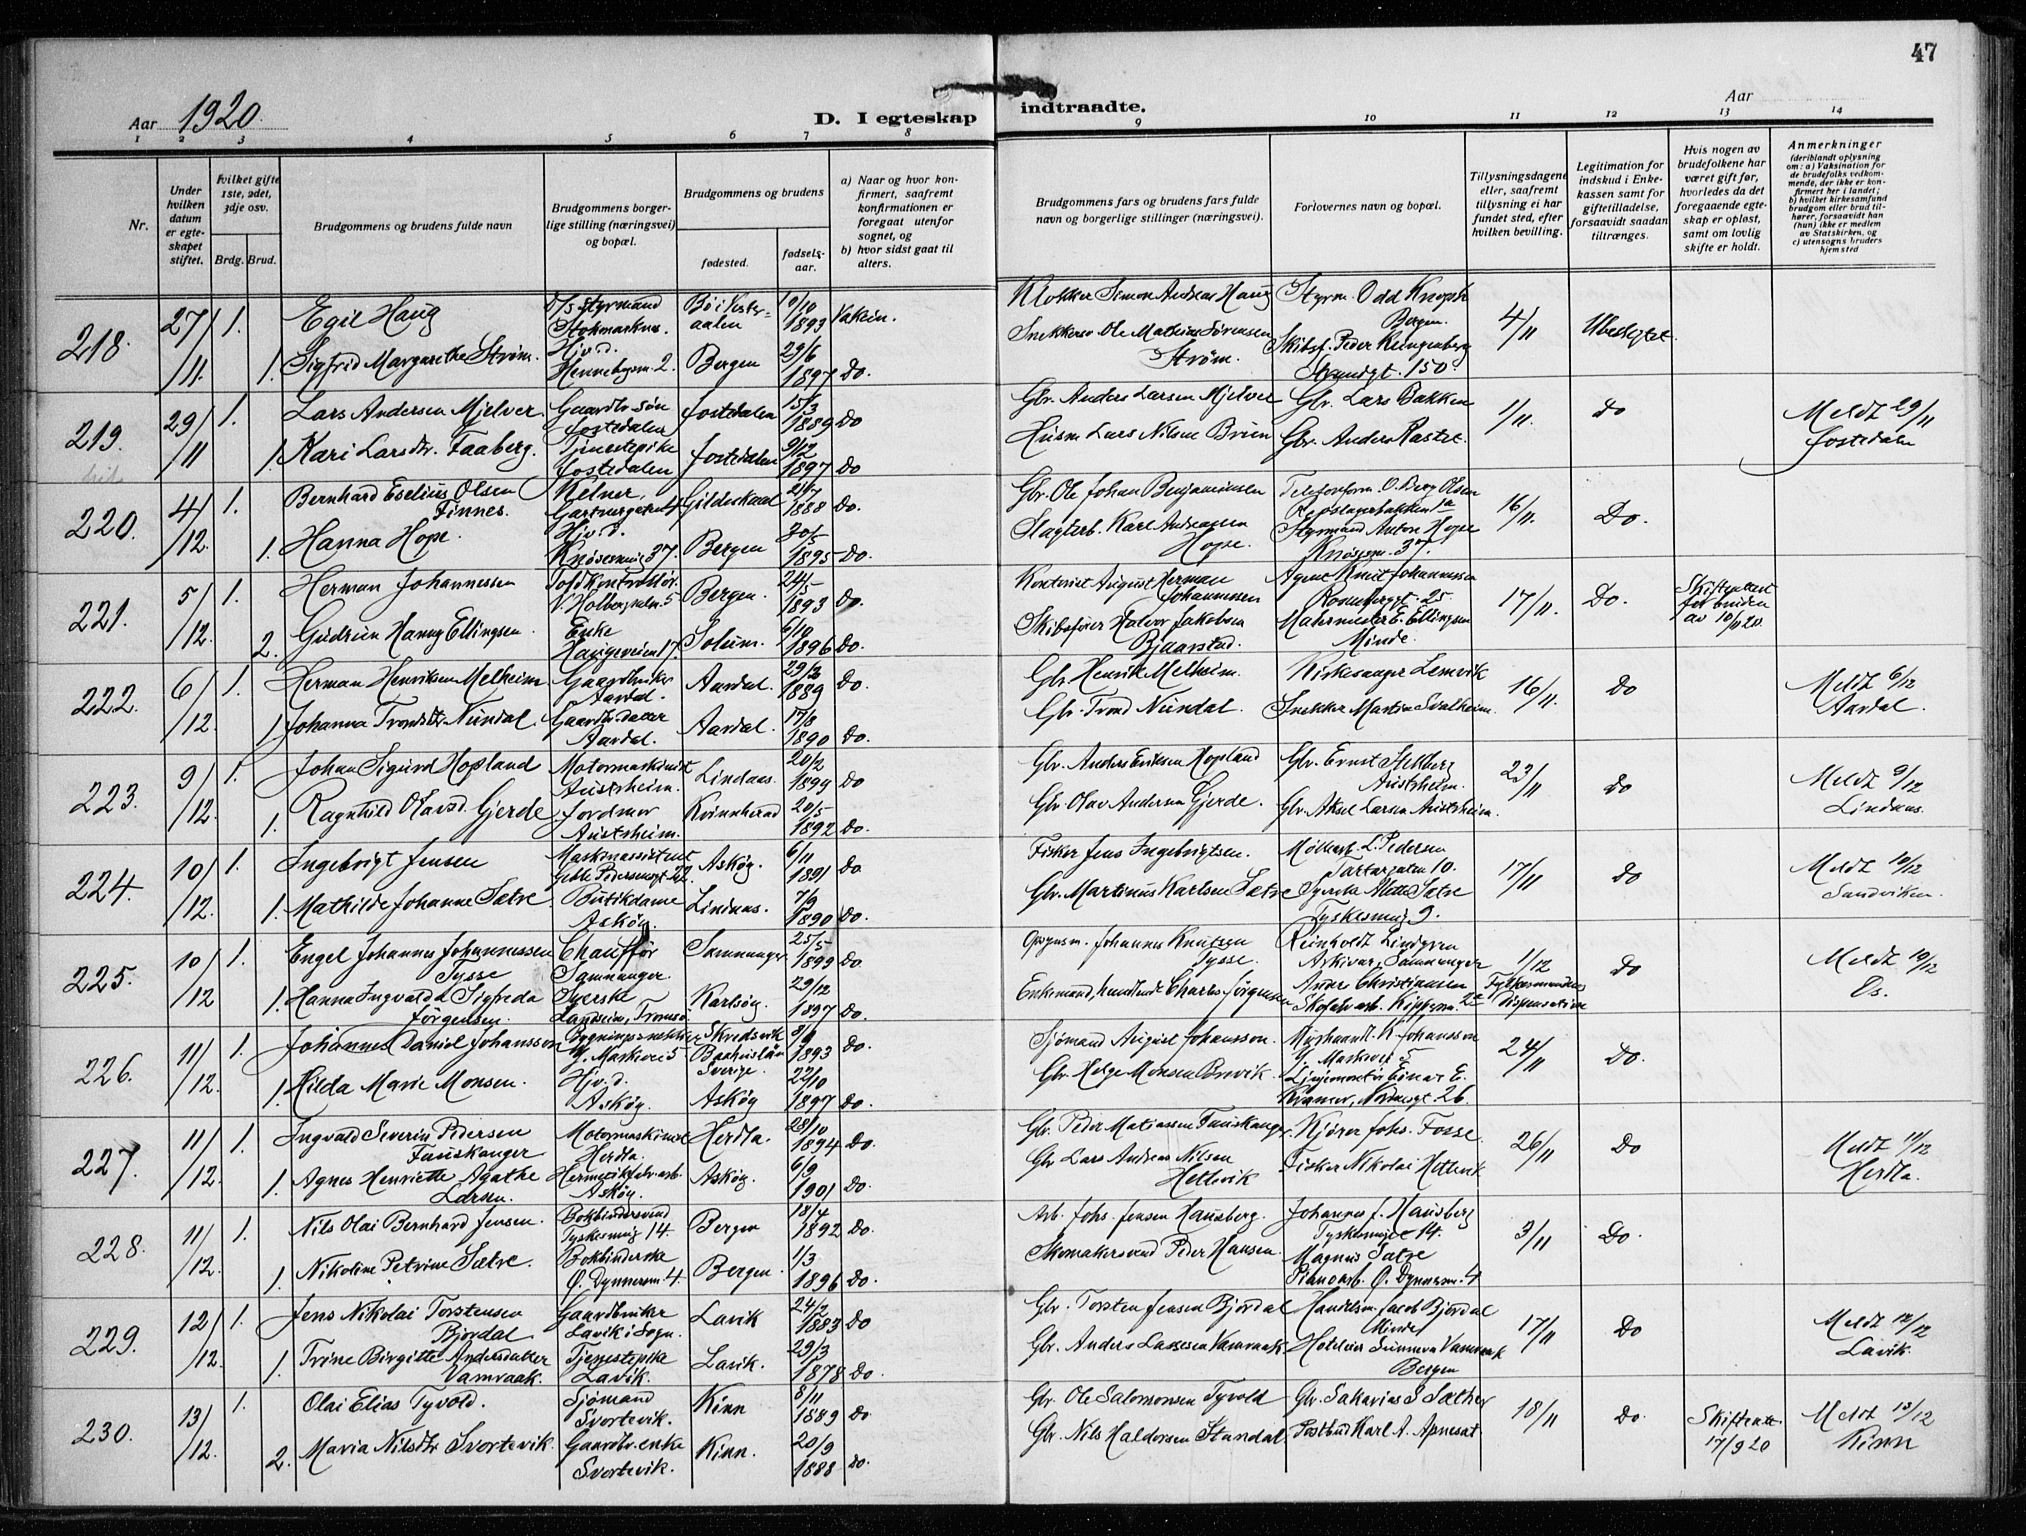 47
Aar 1920
D. I egteskap indtraadte.
Aar
1 2 3 4 5 6 7 8 9 10 11 12 13 14
Nr.
Under hvilken datum er egteskapet stiftet.
Hvilket gifte 1ste, 2det, 3dje osv.
Brdg. Brud.
Brudgommens og brudens fulde navn
Brudgommens borgerlige stilling (næringsvei) og bopæl.
Brudgommens og brudens
fødested.
fødselsaar.
a) Naar og hvor konfirmert, saafremt konfirmationen er foregaat utenfor sognet, og
b) hvor sidst gaat til alters.
Brudgommens fars og brudens fars fulde navn og borgerlige stillinger (næringsvei).
Forlovernes navn og bopæl.
Tillysningsdagene eller, saafremt tillysning ei har fundet sted, efter hvilken bevilling.
Legitimation for indskud i Enkekassen samt for giftetilladelse, forsaavidt saadan tiltrænges.
Hvis nogen av brudefolkene har været gift før, hvorledes da det foregaaende egteskap er opløst, samt om lovlig skifte er holdt.
Anmerkninger
(deriblandt oplysning om: a) Vaksination for de brudefolks vedkommende, der ikke er konfirmert her i landet; b) hvilket kirkesamfund brudgom eller brud tilhører, forsaavidt han (hun) ikke er medlem av Statskirken, og c) utensogns bruders hjemsted
218. 27/11. 1. Egil Haug D/S styrmand Stokmarknes. Bø i Vesteraalen 1893 Vaksin. Klokker Simon Andreas Haug Styrm. Odd Knoph Bergen. 4/11 Ubeskyttet
1. Sigfrid Margarethe Strøm. Hjv. d. 2. Bergen 29/6 1897 Do. Snekkerm. Ole Mathias Sørensen Strøm. Skibsf. Peder Klingenberg Strandgt. 150
219. 29/11 1. Lars Andersen Mjelver. Gaardbr. søn Jostedalen Jostedalen 15/3 1889 Do Gbr. Anders Larsen Mjelver Gbr. Lars Bakken 1/11. Do Meldt 29/11 Jostedalen
1. Kari Larsdtr. Faaberg. Tjenestepike Jostedalen Jostedalen 9/12 1897 Do Husm. Lars Nilsen Bruen Gbr. Anders
220. 4/12. 1. Bernhard Eselius Olsen Finnes. Kelner, Gartnergaten Gildeskaal 21/7 1888 Do. Gbr. Ole Johan Benjaminsen O. Berg Olsen Repslagerbakken 1a 16/11. Do.
1. Hanna Hope. Hjv. d. Knøsesmug 37. Bergen 30/5 1895 Do. Slagterb. Karl Andreassen Hope. Styrmand Anton Hope Knøsesm. 37.
221. 5/12. 1. Herman Johannessen Toldkontrollør. V. Holbergsalm. 5 Bergen. 24/5 1893 Do. Kontorist August Herman Johannessen Agent Knut Johannessen Rosenbergt. 25 17/11. Do. Skifteattest for bruden av 10/11 20.
2. Gudrun Hanny Ellingsen. Enke Haugeveien 17. Solum. 6/10 1896 Do. Skibsfører Halvor Jakobsen Bjaarstad. E. Ellingsen Minde.
222. 6/12. 1. Herman Henriksen Melheim Gaardbruker Aardal. Aardal. 29/3 1889 Do. Gbr. Henrik Melheim. Kirkesanger Lemvik 16/11. Do Meldt 6/12 Aardal.
1. Johanna Trondsdtr. Nundal. Gaardbr. datter Aardal. Aardal. 17/8 1890 Do. Gbr. Trond Nundal. Snekker Martin Svalheim.
223. 9/12. 1. Johan Sigurd Hopland Motormaskinist Austrheim. Lindaas. 20/2 1899 Do Gbr. Anders Eriksen Hopland Gbr. Ernst Austrheim. 23/11 Do Meldt 9/12 Lindaas.
1. Ragnhild Olavsd. Gjerde Jordmor Austrheim. Kvinnherad 20/5 1892 Do. Gbr. Olav Andersen Gjerde. Gbr. Aksel Larsen Austrheim.
224. 10/12. 1. Ingebrigt Jensen Maskinassistent Gebh. Pedersensgt 22. Askøy. 6/11 1891 Do Fisker Jens Ingebrigtsen. L. Pedersen Tartargaten 10. 17/11 Do Meldt 10/12 Sandviken.
1. Mathilde Johanne Sætre Butikdame Askøy. Lindaas. 7/9 1890 Do. Gbr. Martinus Karlsen Sætre Sætre Tyskesmug 9.
225. 10/12 1. Engel Johannes Johannessen Tysse Chauffør Samnanger. Samnanger 25/5 1899 Do. Opsynsm. Johannes Knutsen Tysse. Reinholdt Lindgren Arkivar, Samnanger 1/12 Fylkesmandens dispensation Do Meldt 10/12 Os.
1. Hanna Ingvalda Sigfreda Jørgensen. Syerske Tromsø. Karlsøy. 29/12 1897 Do. Enkemand, handlende Charles Jørgensen Andr. Christiansen
226. 11/12. 1. Johannes Daniel Johansson Bygningssnekker Y. Markevei 5 Skredsvik Bohuslän Sverige. 8/9 1893 Do. Sjømand August Johansson. K. Johansson Y. Markevei 5 24/11 Do.
1. Hilda Marie Monsen. Hjv. d. Askøy. Askøy 22/10 1897 Do. Gbr. Helge Monsen Brevik. Linjemontør Einar E. Kramer, 26.
227. 11/12. 1. Ingvald Severin Pedersen Fauskanger Motormaskinist Herdla. Herdla. 28/10 1894 Do Gbr. Peder Matiassen Fauskanger Kjører Johs. Fosse 26/11 Do Meldt 11/12 Herdla.
1. Agnes Henriette Agathe Larsen. Hermetikfabr.arb. Askøy. Askøy. 6/9 1901 Do. Gbr Lars Andreas Nilsen Hetlevik Fisker Nikolai Hetlevik
228. 11/12. 1. Nils Olai Bernhard Jensen. Bokbindersvend Tyskesmug 14. Bergen 18/4 1892 Do. Arb. Johs. Jensen Hausberg. Johannes J. Hausberg Tyskesmug 14. 3/11 Do.
1. Nikoline Petrine Sætre. Bokbinderske Ø. Dynnersm 4. Bergen. 1/3 1896 Do. Skomakersvend Peder Hansen. Magnus Sætre Pianoarb. Ø. Dynnersm. 4
229. 12/12. 1. Jens Nikolai Torstensen Bjordal Gaardbruker Lavik i Sogn. Lavik 24/2 1883 Do Gbr. Torsten Jensen Bjordal Handelsm. Jacob Bjordal Minde 17/11 Do Meldt 12/12 Lavik.
1. Trine Birgitte Andersdatter Vamraak. Tjenestepike Lavik. Lavik. 29/3 1878 Do. Gbr. Anders Lassesen Vamraak. Hoteleier Vamraak Bergen
230. 13/12. 1. Olai Elias Tyvold. Sjømand Svortevik. Kinn 8/11 1889 Do Gbr. Ole Salomonsen Tyvold Gbr. Sakarias S. Sæther 18/11 Do. Skifteatt. 17/9 20 Meldt 13/12 Kinn
2. Maria Nilsdtr Svortevik. Gaardbr. enke Svortevik. Kinn. 20/9 1888 Do. Gbr. Nils Haldorsen Standal. Postbud Karl A. Apnesæt